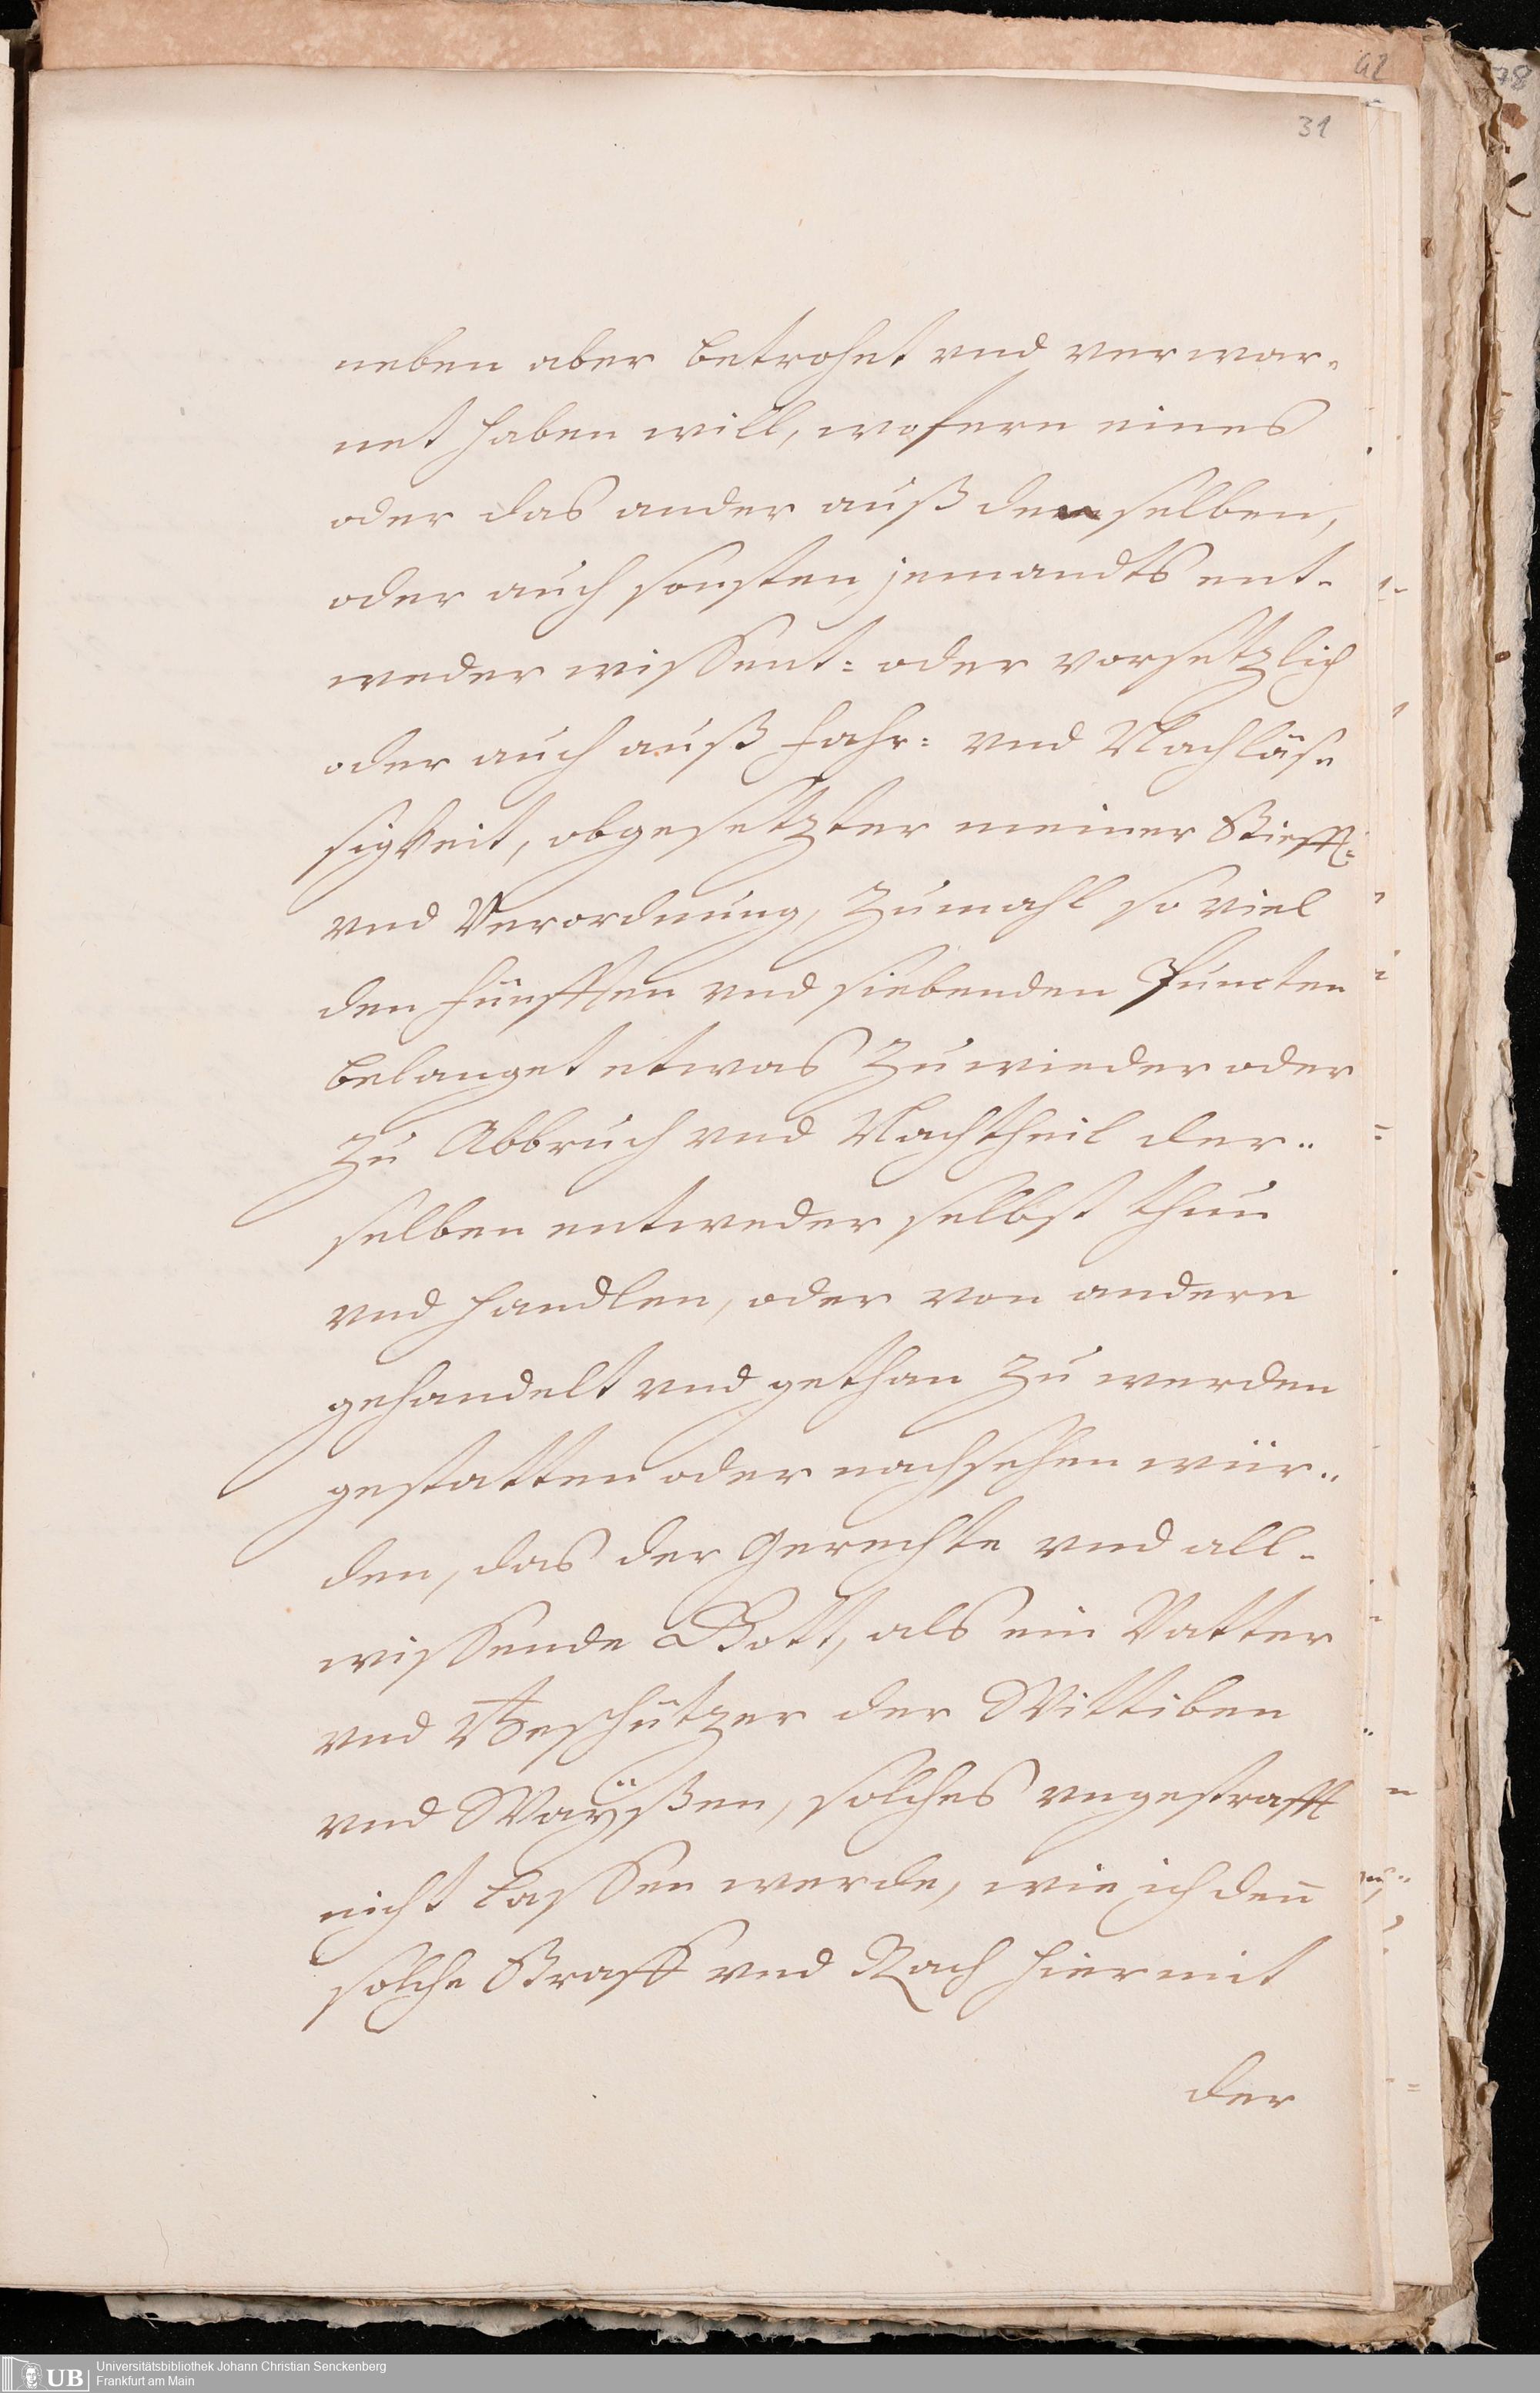 42
78
31
neben aber betrohet vnd verwar-
net haben will, wofern eines
oder das ander auß denselben,
oder auch sonsten jemandts ent-
weder wissent: oder vorsetzlich
oder auch auß fahr: vnd Nachläs-
sigkeit, obgesetzter meiner Stifft:
vnd Verordnung, zumahl so viel
den fünfften vnd siebenden Puncten
belanget etwas zuwieder oder
zu Abbruch vnd Nachtheil der-
selben entweder selbst thun
vnd handlen, oder von andern
gehandelt vnd gethan zu werden
gestatten oder nachsehen wür-
den, das der Gerechte vnd all-
wissende Gott, als ein Vatter
vnd Beschützer der Wittiben
vnd Waÿßen, solches vngestrafft
nicht lassen werde, wie ich den̄
solche Straff vnd Rach hiermit
der
UB
Universitätsbibliothek Johann Christian Senckenberg
Frankfurt am Main